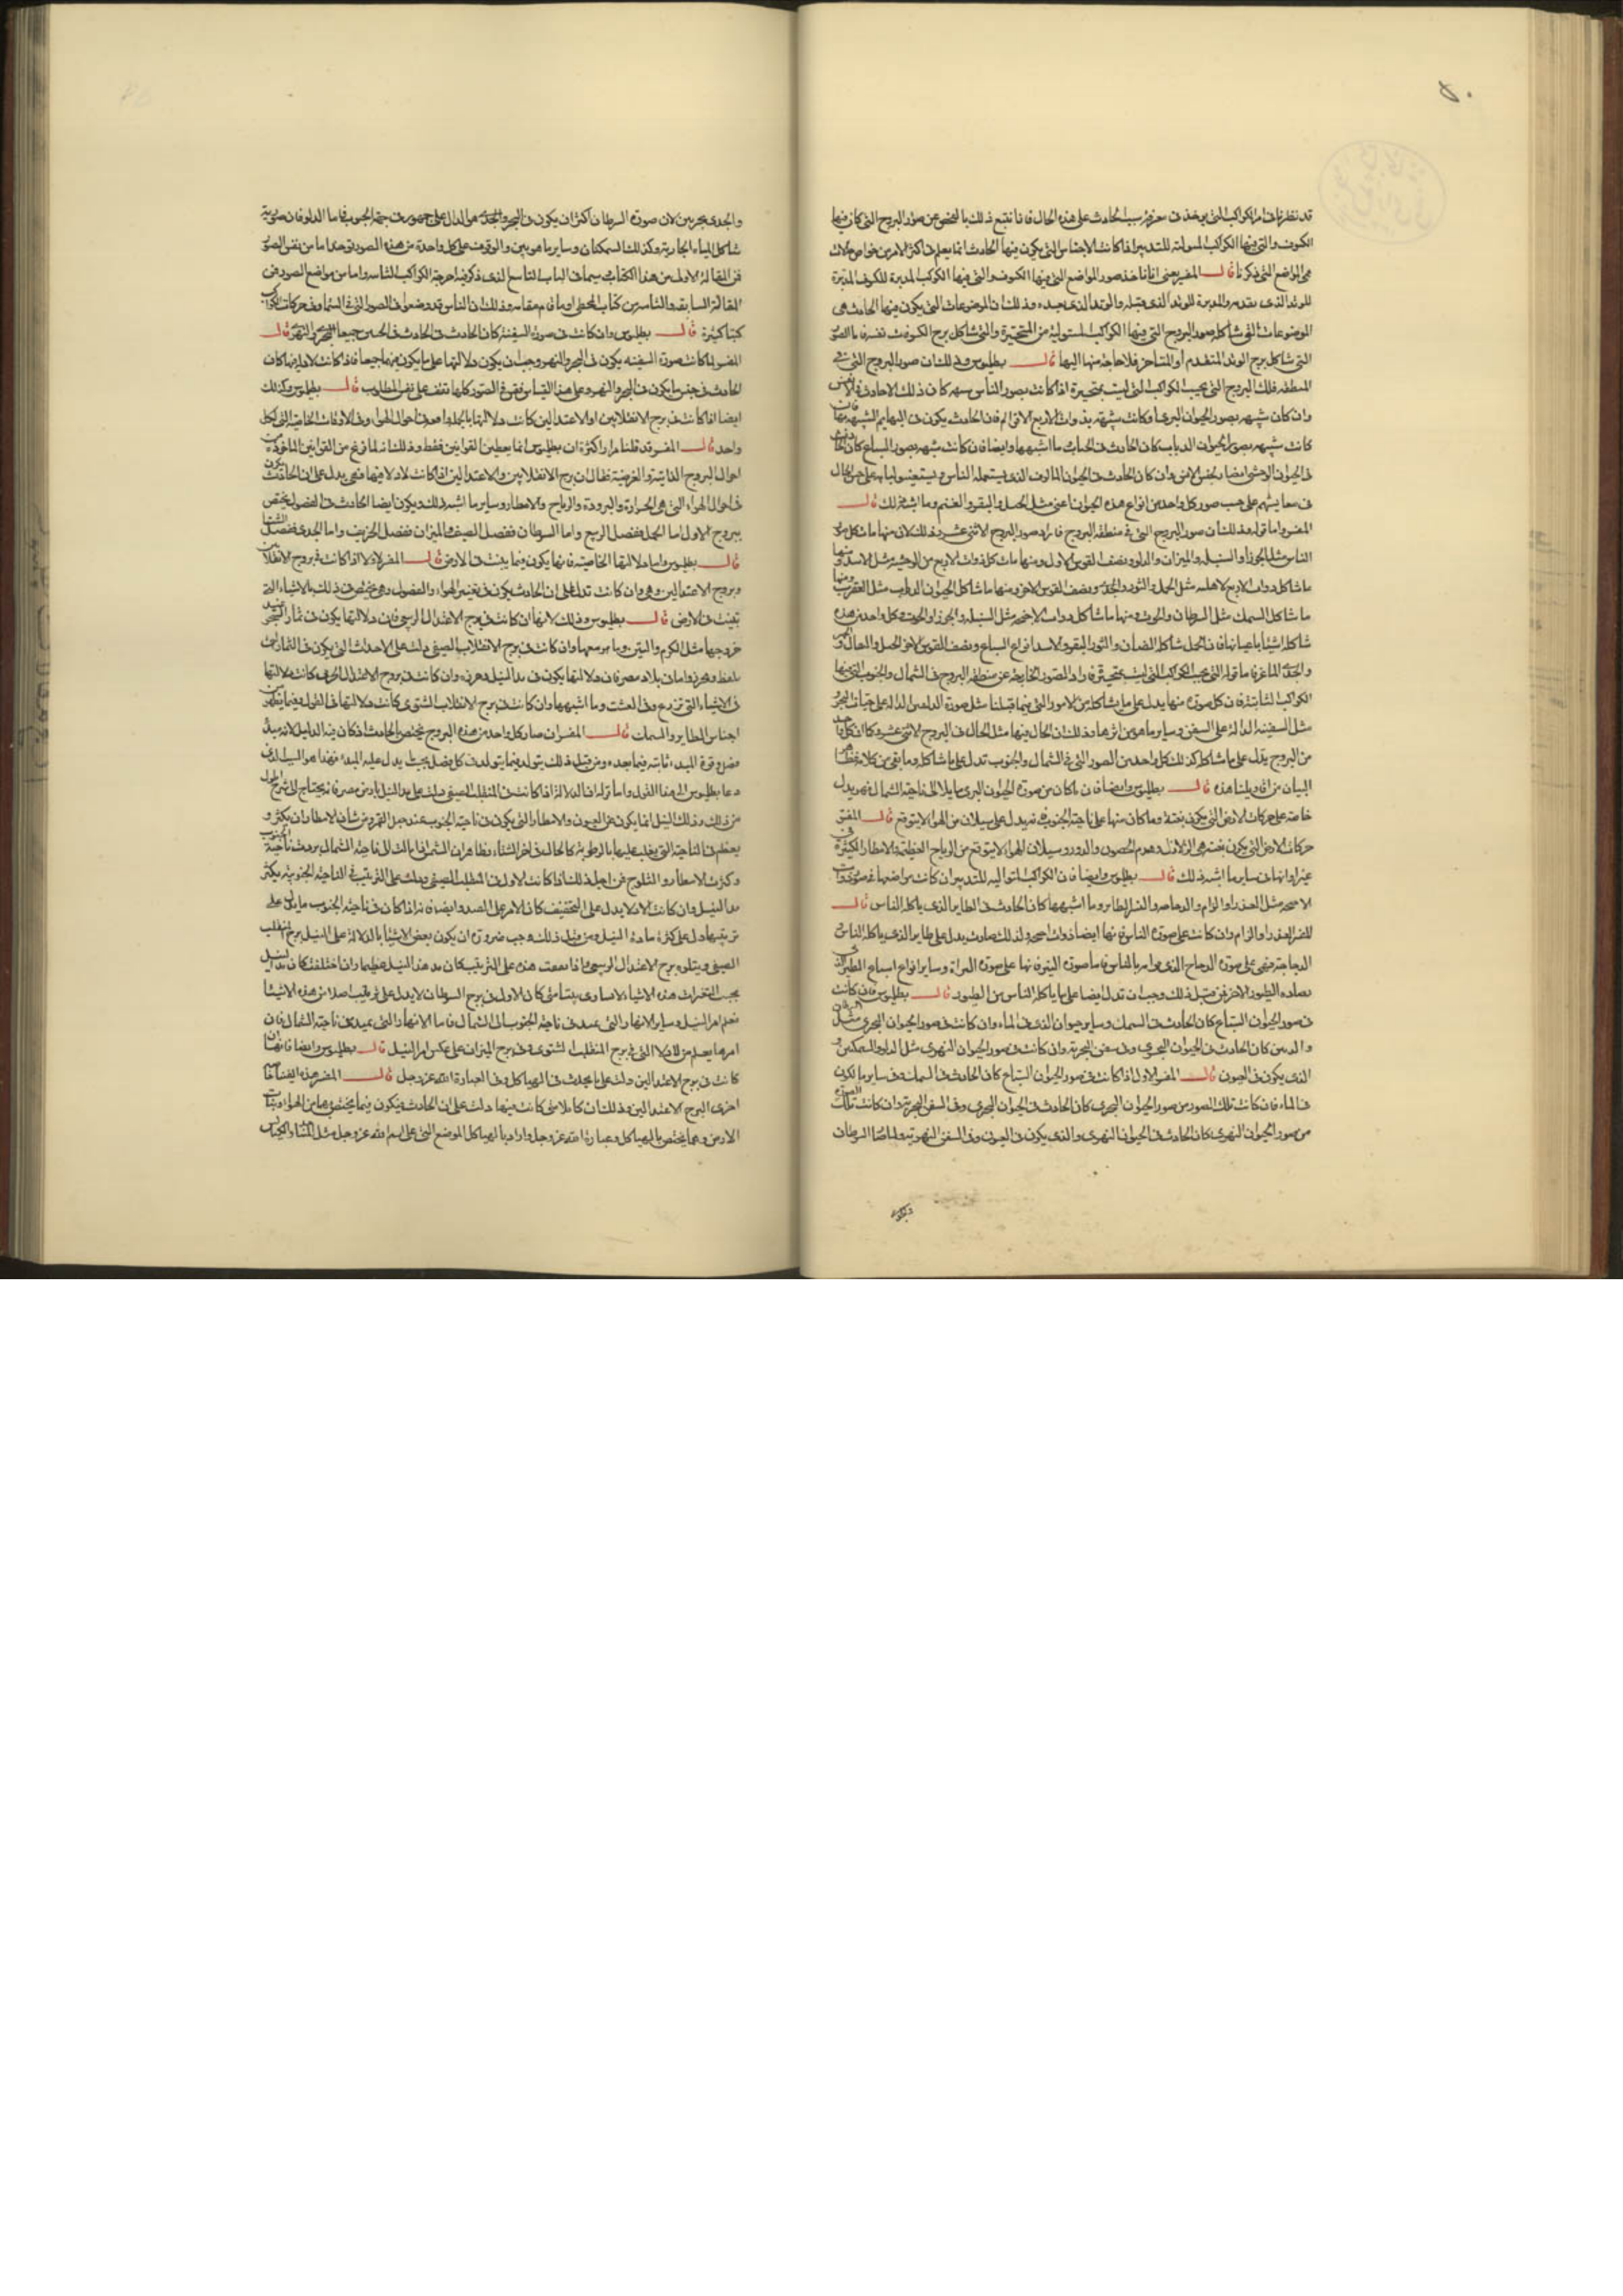 ٥٠
قد نظرنا في امر الكواكب التي يوخذ من معرفة سبب الحادث على هذه الحال فانا نتبع ذلك بالفحص عن صور البروج التي كان فيها
الكسوف والتي فيها الكواكب المسولية للتدبير اذا كانت الاجناس التي يكون فيها الحادث انما يعلم في اكثر الامر من خواص حالات
هي المواضع التي ذكرنا قال المفسر يعني انا ناخذ صور المواضع التي فيها الكسوف والتي فيها الكواكب المدبرة للكسوف المدبرة
للوتد الذي يتقدمه والمدبرة للوتد الذي قبله والوتد الذي بعده وذلك ان الموضوعات التي يكون فيها الحادث هي
الموضوعات التي تشاكل صور البروج التي فيها الكواكب المستولية من المتحيرة والتي تشاكل برج الكسوف نفسه فاما الصور
التي تشاكل برج الوتد المتقدم او المتاخر فلا حاجة منها اليها قال بطلميوس وذلك ان صور البروج التي في
المنطقه فلك البروج التي يجب الكواكب التي ليست بمتحيرة اذا كانت بصور الناس سبهه كان ذلك الاحادث في الانس
وان كان شبيهه بصور الحيوان البري وكانت شبيهة بذوات الاربع الاقوام فان الحادث يكون في البهايم الشبيهة بها فان
كانت شبيهه بصور الحيوان الدباب كان الحادث في الحيات وما اشبهها وايضا فان كانت شبيهه بصور السباع كان الحادث
في الحيوان الوحشي المضار بجنس الانس وان كان الحادث في الحيوان المالوف الذي يستعمله الناس ويستعينون به على حسن الحال
في معايشهم على حسب صور كل واحد من انواع هذه الحيوان اعني مثل الخيل والبقر والغنم وما اشبه ذلك قال
المفسر واما قوله وذلك ان صور البروج التي في منطقه البروج فاراد صور البروج الاثني عشر وذلك لان منها ما شاكل صور
الناس مثل الجوزا والسنبله والميزان والدلو ونصف القوس الاول ومنها ما شاكل ذوات الاربع من الوحشية مثل الاسد ومنها
ما شاكل ذوات الاربع الاهلية مثل الحمل والثور والجدي ونصف القوس الاخر ومنها ما شاكل الحيوان الدباب مثل العقرب ومنها
ما شاكل السمك مثل السرطان والحوت ومنها ما شاكل ذوات الاجنحه مثل السنبله والجوزا والحوت وكل واحد من هذه
شاكل اشيا باعيانها فان الحمل شاكل الضان والثور البقر والاسد انواع السباع ونصف القوس الاخر الخيل والبغال
والجدي الماعز فاما قوله التي يجب الكواكب التي ليست بمتحيرة فاراد الصور الخارجة عن منطقه البروج في الشمال والجنوب التي فيها
الكواكب الثابتة فان كل صورة منها يدل على ما يشاكله من الامور التي فيما قبلنا مثل صورة الدلفين الدالة على حيتان البحر
مثل السفينه الدالة على السفن وساير ما هو من اثرها وذلك ان الحال فيها مثل الحال في البروج الاثني عشر وكما ان كل واحد
من البروج يدل على ما شاكله كذلك كل واحد من الصور التي في الشمال والجنوب تدل على ما شاكله وما بقي من كلامه ظاهر
البيان من اقاويلنا هذه قال بطلميوس وايضا فان ما كان من صورة الحيوان البري مايلا الى ناحية الشمال فهو يدل
خاصة على حركات الارض التي يكون بغتة وما كان منها على ناحية الجنوب فهو يدل على سيلان من الهوا لا يتوقع قال المفسر
حركات الارض التي يكون بغته هي الزلازل وهدم الحصون والدور وسيلان الهوا لا يتوقع من الرياح العظيمة والامطار الكثيرة في
غير اوانها وساير ما اشبه ذلك قال بطلميوس وايضا فان الكواكب المتوالية للتدبير ان كانت مواضعها في صورة ذوات
الاجنحه مثل العذرا والرام والدجاجه والنسر الطاير وما اشبهها كان الحادث في الطاير الذي ياكله الناس قال
المفسر العذرا والرام وان كانت على صورة الناس فانها ايضا ذوات اجنحه ولذلك صارت يدل على طاير الذي ياكله الناس
الدجاجة فهي على صورة الدجاج الذي هو امر بالناس فاما صورة النسر فانها على صورة البزاة وساير انواع السباع الطير التي
تصاده الطيور الاخر فمن قبل ذلك وجب ان تدل ايضا على ما ياكله الناس من الطيور قال بطلميوس فان كانت
في صور الحيوان السباح كان الحادث في السمك وساير حيوان الذي في الماء وان كانت في صور الحيوان البحري مثل السرطان
والدلفين كان الحادث في الحيوان البحري وفي سفن البحرية وان كانت في صور الحيوان النهري مثل الدلو والسمكتين و
الذي يكون في العيون قال المفسر الاول اذا كانت في صور الحيوان السباح كان الحادث في السمك وفي ساير ما يكون
في الماء فان كانت تلك الصور من صور الحيوان البحري كان الحادث في الحيوان البحري وفي السفن البحرية وان كانت تلك الصورة
من صور الحيوان النهري كان الحادث في الحيوان النهري والذي يكون في العيون وفي السفن النهرية ولما صار السرطان
والجدي بحريين لان صورة السرطان اكثر ان يكون في البحر والجدي هو الدال على جمهور في جهة الجنوب فاما الدلو فان صورته
شاكل المياه الجارية وكذلك السمكتان وساير ما هو بين والوقوف على كل واحدة من هذه الصور يوجد اما من نفس الصور
فمن المقالة الاولى من هذا الكتاب سيما في الباب التاسع الذي ذكر فيه امزجة الكواكب الثابتة واما من مواضع الصور في
المقالة السابعه والثامنه من كتاب المجسطي او ما قام مقامه وذلك ان الناس قد وضعوا في الصور التي في السماء وفي حركات الكواكب
كتبا كثيرة قال بطلميوس وان كانت في صورة السفينة كان الحادث في الجنسين جميعا البحري والنهري قال
المفسر لما كانت صورة السفينه يكون في البحر والنهر وجب ان يكون دلالتها على ما يكون فيهما جميعا فاذا كانت لادلة بها كان
الحادث في جنس ما يكون في البحر والنهر وعلى هذا القياس فقس في الصور كلها تقف على نفس المطلوب قال بطلميوس وكذلك
ايضا اذا كانت في برج الانقلابين او الاعتدالين كانت دلالتها بالجملة احوال الهوا وفي الاوقات الخاصية التي لكل
واحد قال المفسر قد قلنا مرارا كثيرة ان بطلميوس انما يعطينا القوانين فقط وذلك انه لما فرغ من القوانين الماخوذة من
احوال البروج الذاتية والعرضية فقال ان برج الانقلابين والاعتدالين اذا كانت لادلة فيها فهي يدل على ان الحادث يكون
في احوال الهواء التي هي الحرارة والبرودة والرياح والامطار وساير ما اشبه ذلك ويكون ايضا الحادث في الفصول يختص
ببروج الاول اما الحمل ففصل الربيع واما السرطان ففصل الصيف والميزان ففصل الخريف واما الجدي ففصل الشتا
قال بطلميوس واما دلالتها الخاصية فانها يكون فيما ينبت في الارض قال المفسر الاولة اذا كانت في بروج الانقلابين
وبروج الاعتدالين وهي وان كانت تدل على ان الحادث يكون في تغيير الهواء والفصول وهي يختص في ذلك بالاشياء التي
تنبت في الارض قال بطلميوس وذلك لانها ان كانت في برج الاعتدال الربيعي فان دلالتها يكون في ثمار الشجر عند
خروجها مثل الكرم والتين وما هو معهما وان كانت في برج الانقلاب الصيفي دلت على الاحداث التي يكون في الثمار التي
يلقط ويحرز واما في بلاد مصر فان دلالتها يكون في مد النيل وغيره وان كانت في بروج الاعتدال الخريفي كانت دلالتها
في الاشياء التي تزرع وفي العشب وما اشبهها وان كانت في برج الانقلاب الشتوي كانت دلالتها في البقول وفيما يظهر من
اجناس الطاير والسمك قال المفسر ان صار كل واحد من هذه البروج يختص الحادث اذ كان فيه الدليل لانه مبدأ
فصل وقوة المبدء ثابته فيما بعده ومن قبل ذلك يتولد فيما يتولد في كل فصل بحسب ما يدل عليه المبدء فهذا هو السبب الذي
دعا بطلميوس الى هذا القول واما قوله ان الدلالة اذا كانت في المنقلب الصيفي دلت على مد النيل بارض مصر فانه يحتاج الى شرح
من ذلك وذلك ان النيل انما يكون من العيون والامطار التي يكون في ناحية الجنوب عند جبل القمر ومن شان الامطار ان يكثر و
يعظم في الناحية التي يغلب عليها بالرطوبة كالحال في اخر الشتاء وظاهر ان الشمس اذا مالت الى ناحية الشمال بردت ناحية الجنوب
وكثرت الامطار والثلوج فمن اجل ذلك اذا كانت الاولة في المنقلب الصيفي ودلت على الترطيب في الناحية الجنوبية يكثر
مد النيل وان كانت الادلة يدل على التجفيف كان الامر على الضد وايضا فانه اذا كان في ناحية الجنوب ما يدل على
ترطيبها دل على كثرة مادة النيل ومن قبل ذلك وجب ضرورة ان يكون بعض الاشياء بالدلالة على النيل برج المنقلب
الصيفي ويتلوه برج الاعتدال الربيعي فاذا اجتمعت هذه على الترطيب كان مد هذا النيل عظيما وان اختلفت كان مد النيل
بحسب التغيرات هذه الاشياء الا ساوى بتة متى كان الاول في برج السرطان لا يدل على ترطيب اصلا من هذه الاشيا
نعلم امر النيل وساير الانهار التي تمد في ناحية الجنوب الى الشمال فاما الانهار التي تمد من ناحية الشمال فان
امرها يعلم من الادلة التي في برج المنقلب الشتوي وفي برج الميزان على عكس امر النيل قال بطلميوس وايضا فانها ان
كانت في بروج الاعتدالين دلت على ما يحدث في الهياكل وفي العبادة لله عز وجل قال المفسر هذه ايضا خاصة
اخرى لبروج الاعتدالين وذلك ان كل دلالة متى كانت فيها دلت على ان الحادث يكون فيما يختص بها من الهواء ونبات
الارض وما يختص بالهياكل وعبادة الله عز وجل واراد بالهياكل الموضع التي على اسم الله عز وجل مثل المساجد والكنايس